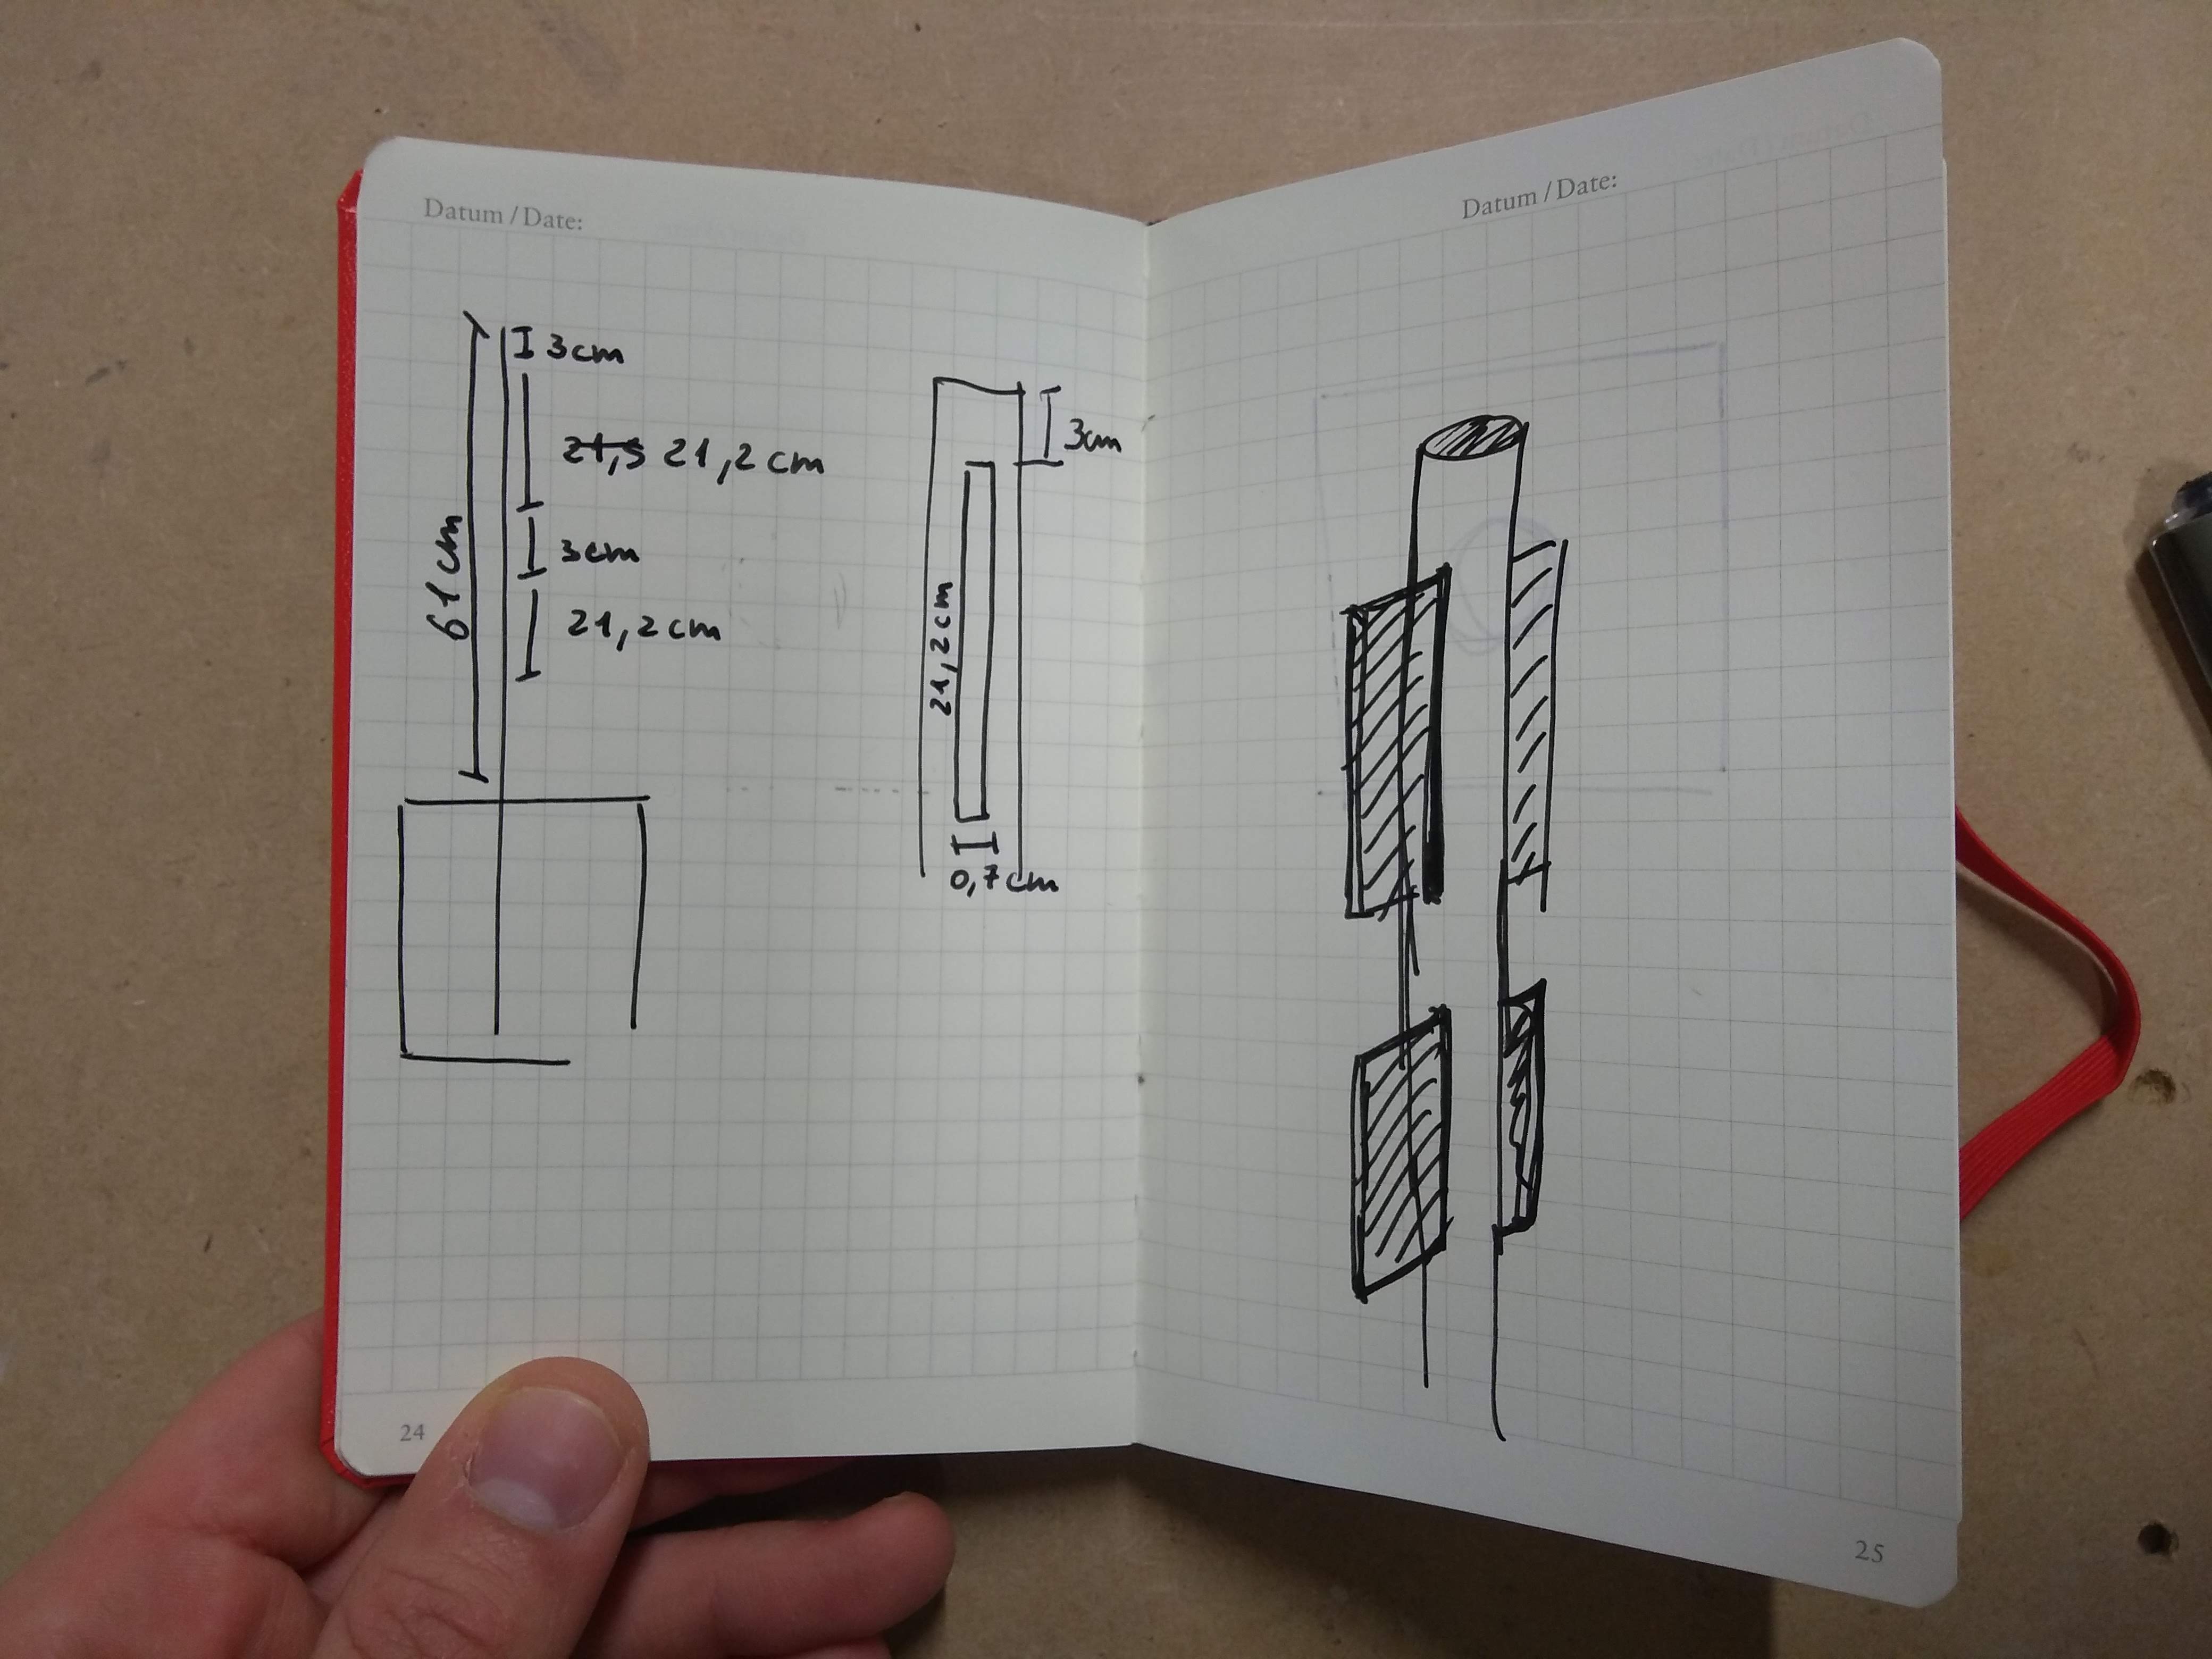 Datum / Date:
3cm
21,5 21,2 cm
3cm
21,2 cm
61 cm
3cm
21,2cm
0,7 cm
24
Datum / Date:
25